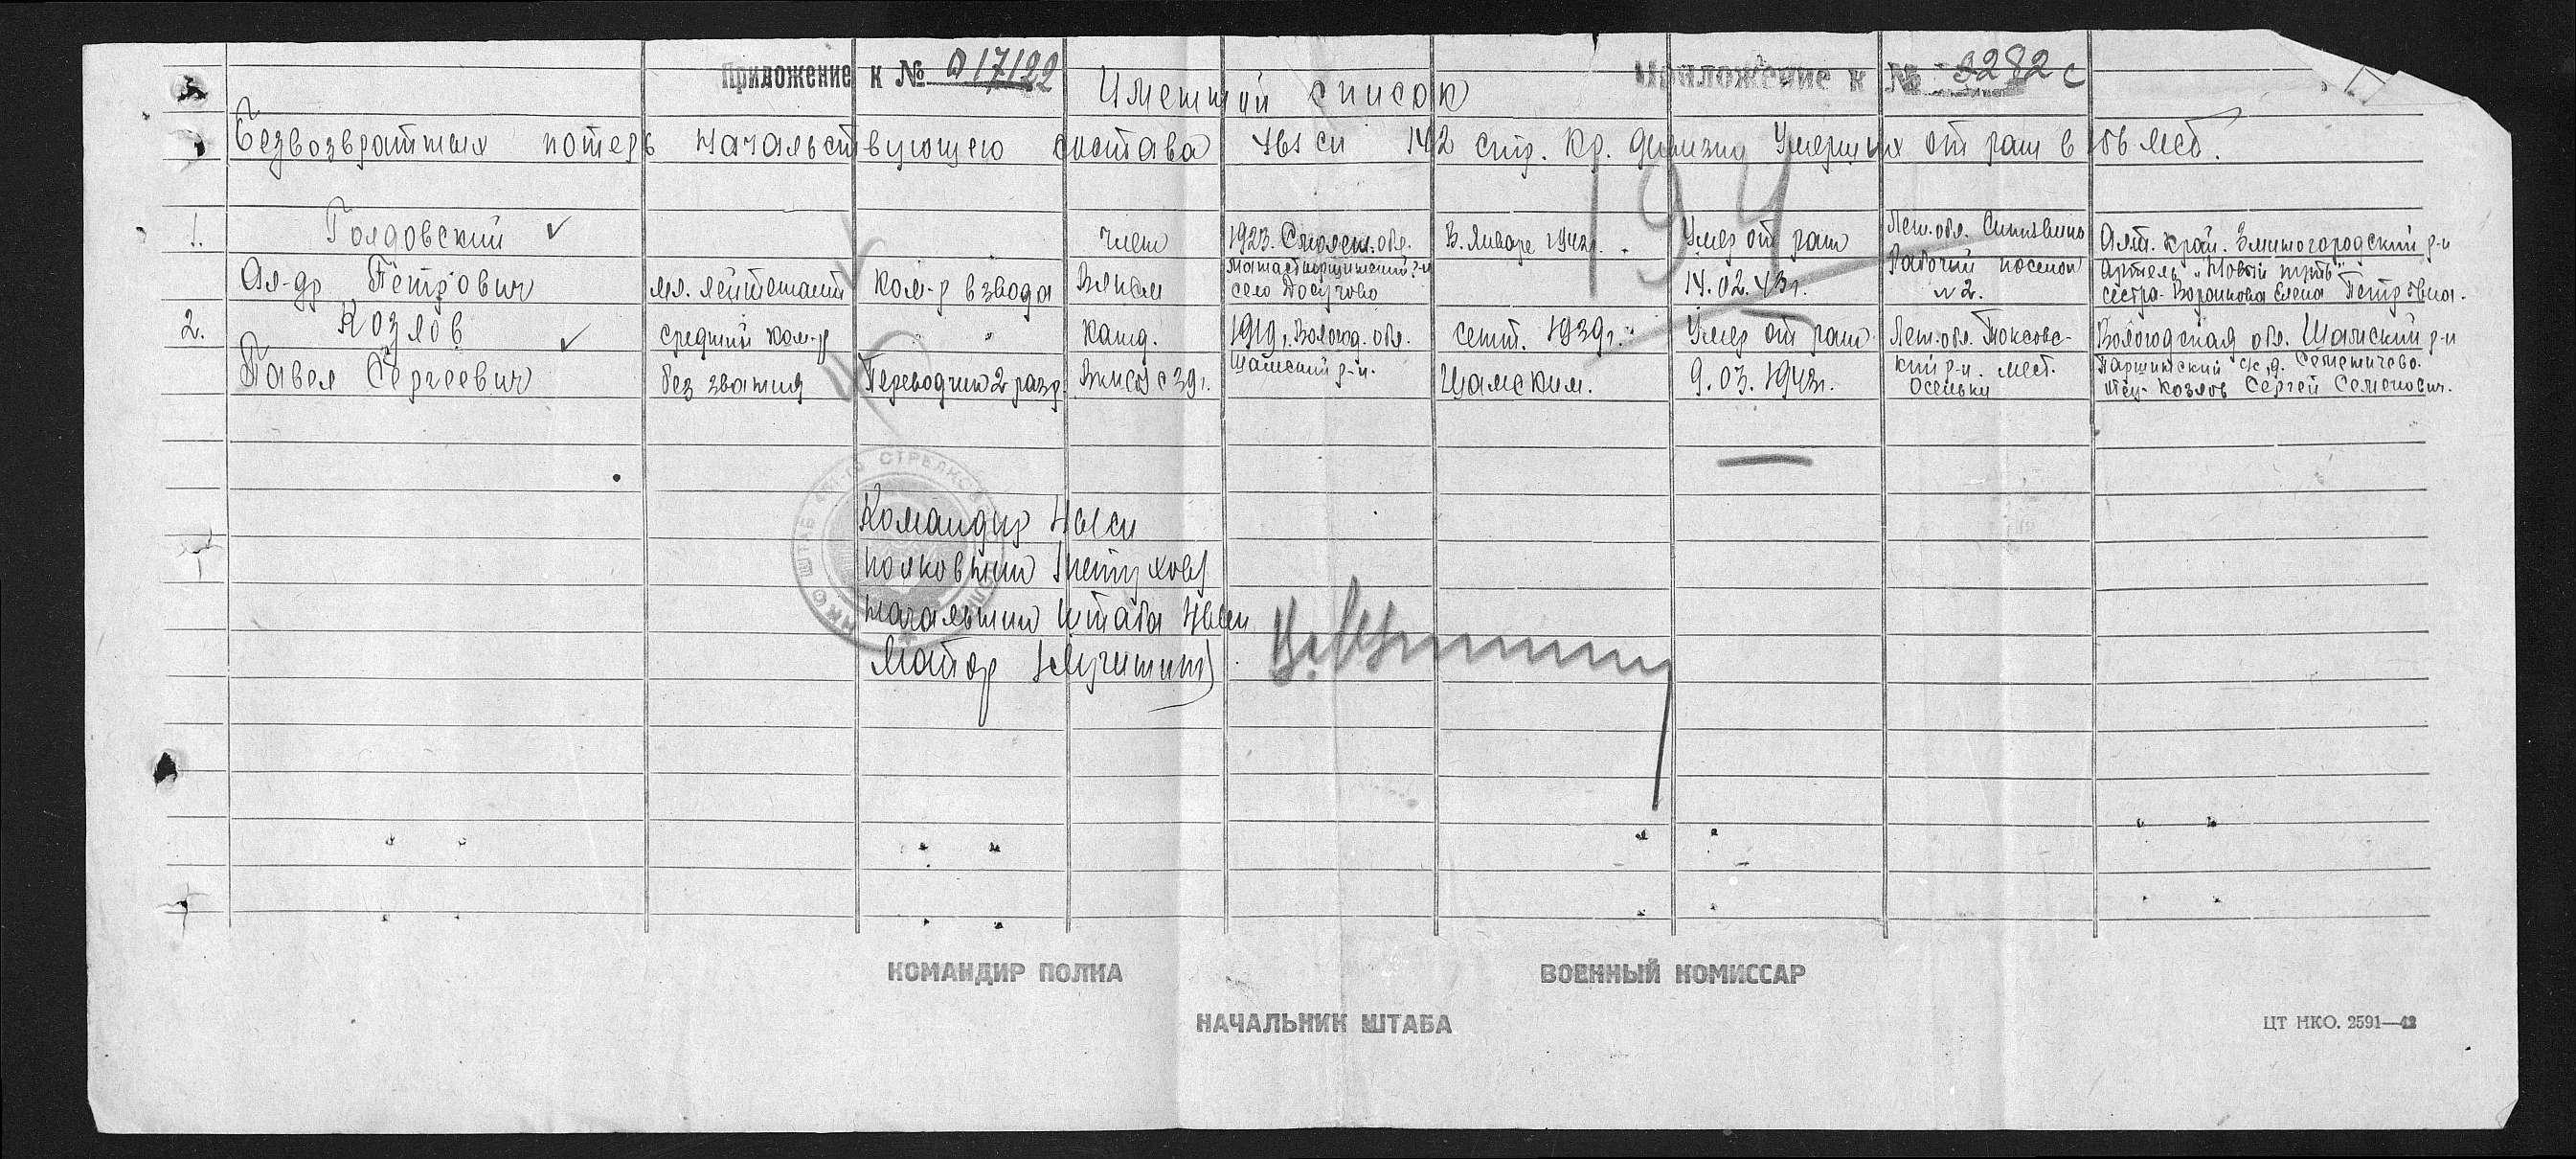 Приложение к № 017122
Приложение к № 3282 с
Именной список
Безвозвратных потерь начальствующего состава 461 сп 142 стр. Кр. дивизии Умерших от ран в ОБ МСБ.
1. Голдовский член 1923. Смолен. обл. В. Январе 1942г. Умер от ран Лен. обл. Синявино Алт. край. Змеиногородский р-н
Ал-др Петрович мл. лейтенант Ком-р взвода ВЛКСМ Монастырщинский р-н 14.02.43г. Рабочий поселок Артель "Новый путь"
село Досугово № 2. сестра - Воронкова Елена Петровна.
2. Козлов средний ком-р " " канд. 1919г. Волог. обл. сент. 1939г. Умер от ран Лен. обл. Токсовс- Вологодская обл. Шамский р-н
Павел Сергеевич без звания Переводчик 2 разр. ВКП(б) с 39г. Шамский р-н. Шамским. 9.03.1943г. кий р-н. мест. Паршинский с/с, д. Семенчево.
Осельки отец - Козлов Сергей Семенович.
194
НКО ШТАБ 461-ГО СТРЕЛКОВ
Командир 461 сп
полковник (Петухов)
Начальник штаба 461 сп
Майор
КОМАНДИР ПОЛКА
ВОЕННЫЙ КОМИССАР
НАЧАЛЬНИК ШТАБА
ЦТ НКО. 2591—42